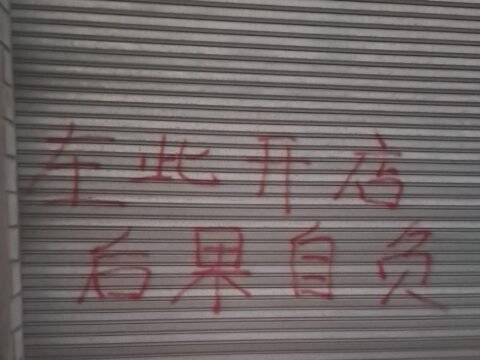 左此开店
后果自负